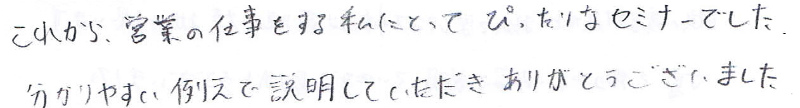 これから、営業の仕事をする私にとって ぴったりなセミナーでした.
分かりやすい例えで説明していただき ありがとうございました